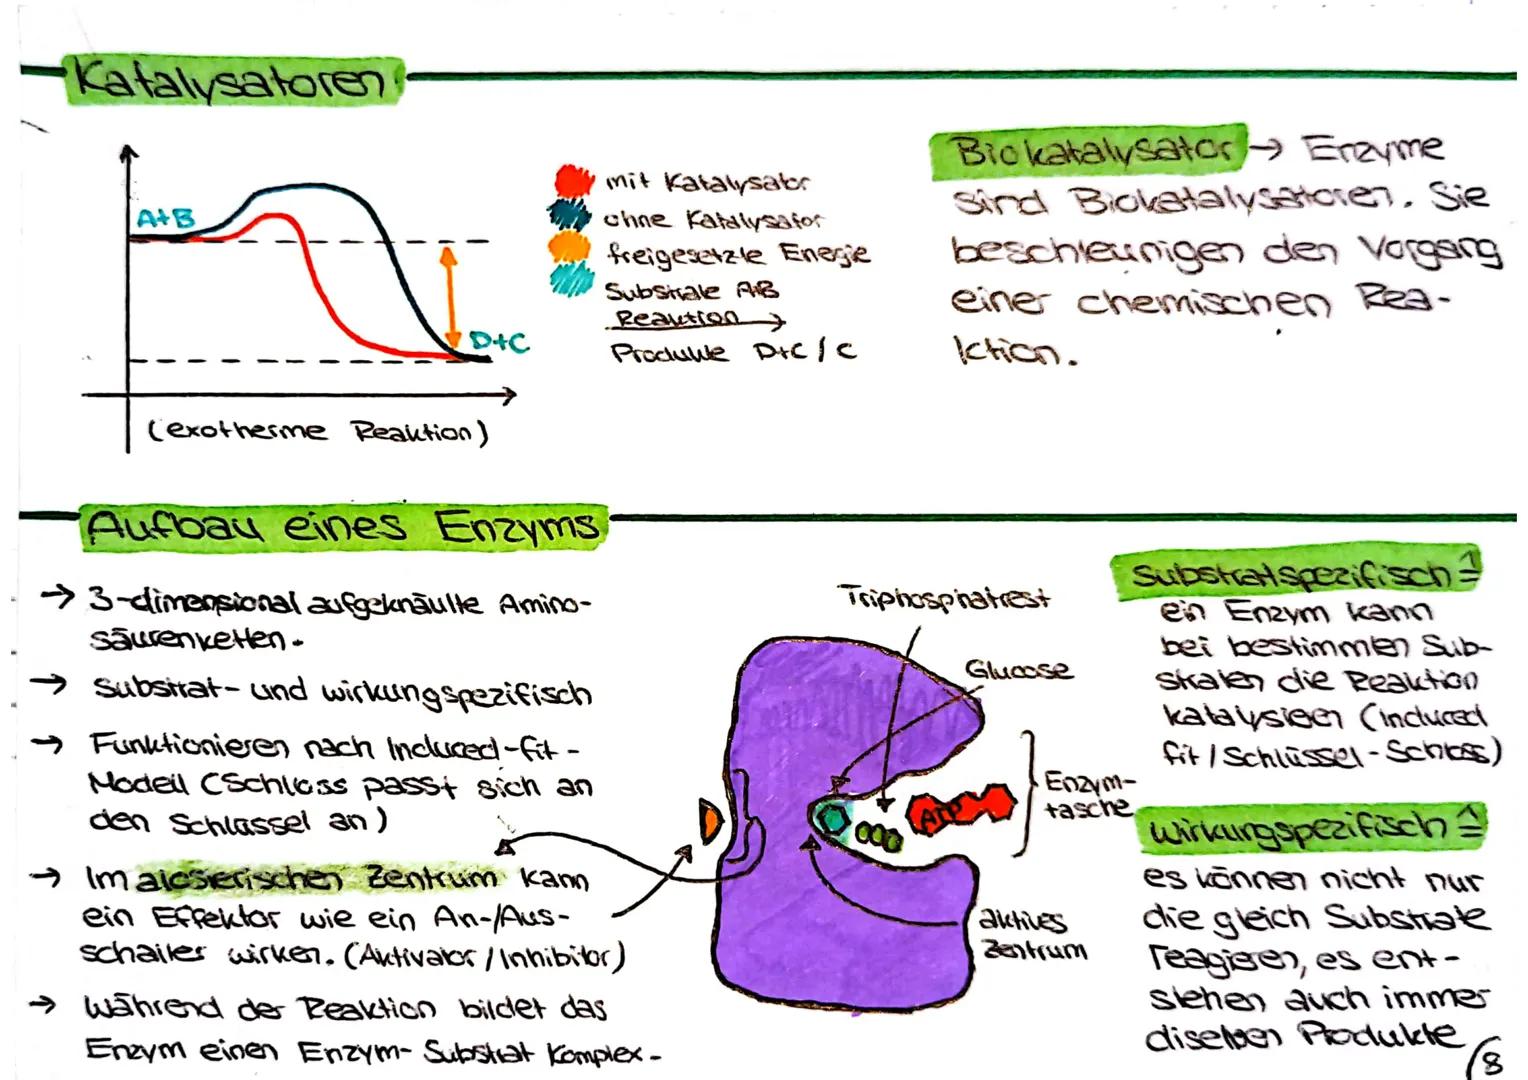 Katalysatoren
A+B
D+C
(exotherme Reaktion)
mit Katalysator
ohne Katalysator
freigesetzte Energie
Substrate A+B
Reaktion
Produkte D+C / C
Biokatalysator → Enzyme
sind Biokatalysatoren. Sie
beschleunigen den Vorgang
einer chemischen Rea-
ktion.
Aufbau eines Enzyms
→ 3-dimensional aufgeknäulte Amino-
säurenketten.
→ Substrat- und wirkungspezifisch
→ Funktionieren nach Induced-fit-
Modell (Schloss passt sich an
den Schlüssel an)
→ Im alosterischen Zentrum kann
ein Effektor wie ein An-/Aus-
schalter wirken. (Aktivator / Inhibitor)
→ Während der Reaktion bildet das
Enzym einen Enzym-Substrat Komplex.
Triphosphatrest
Glucose
ATP
Enzym-
tasche
aktives
Zentrum
Substratspezifisch ≙
ein Enzym kann
bei bestimmten Sub-
straten die Reaktion
katalysieren (Induced
fit / Schlüssel-Schloss)
wirkungspezifisch ≙
es können nicht nur
die gleich Substrate
reagieren, es ent-
stehen auch immer
diselben Produkte
8